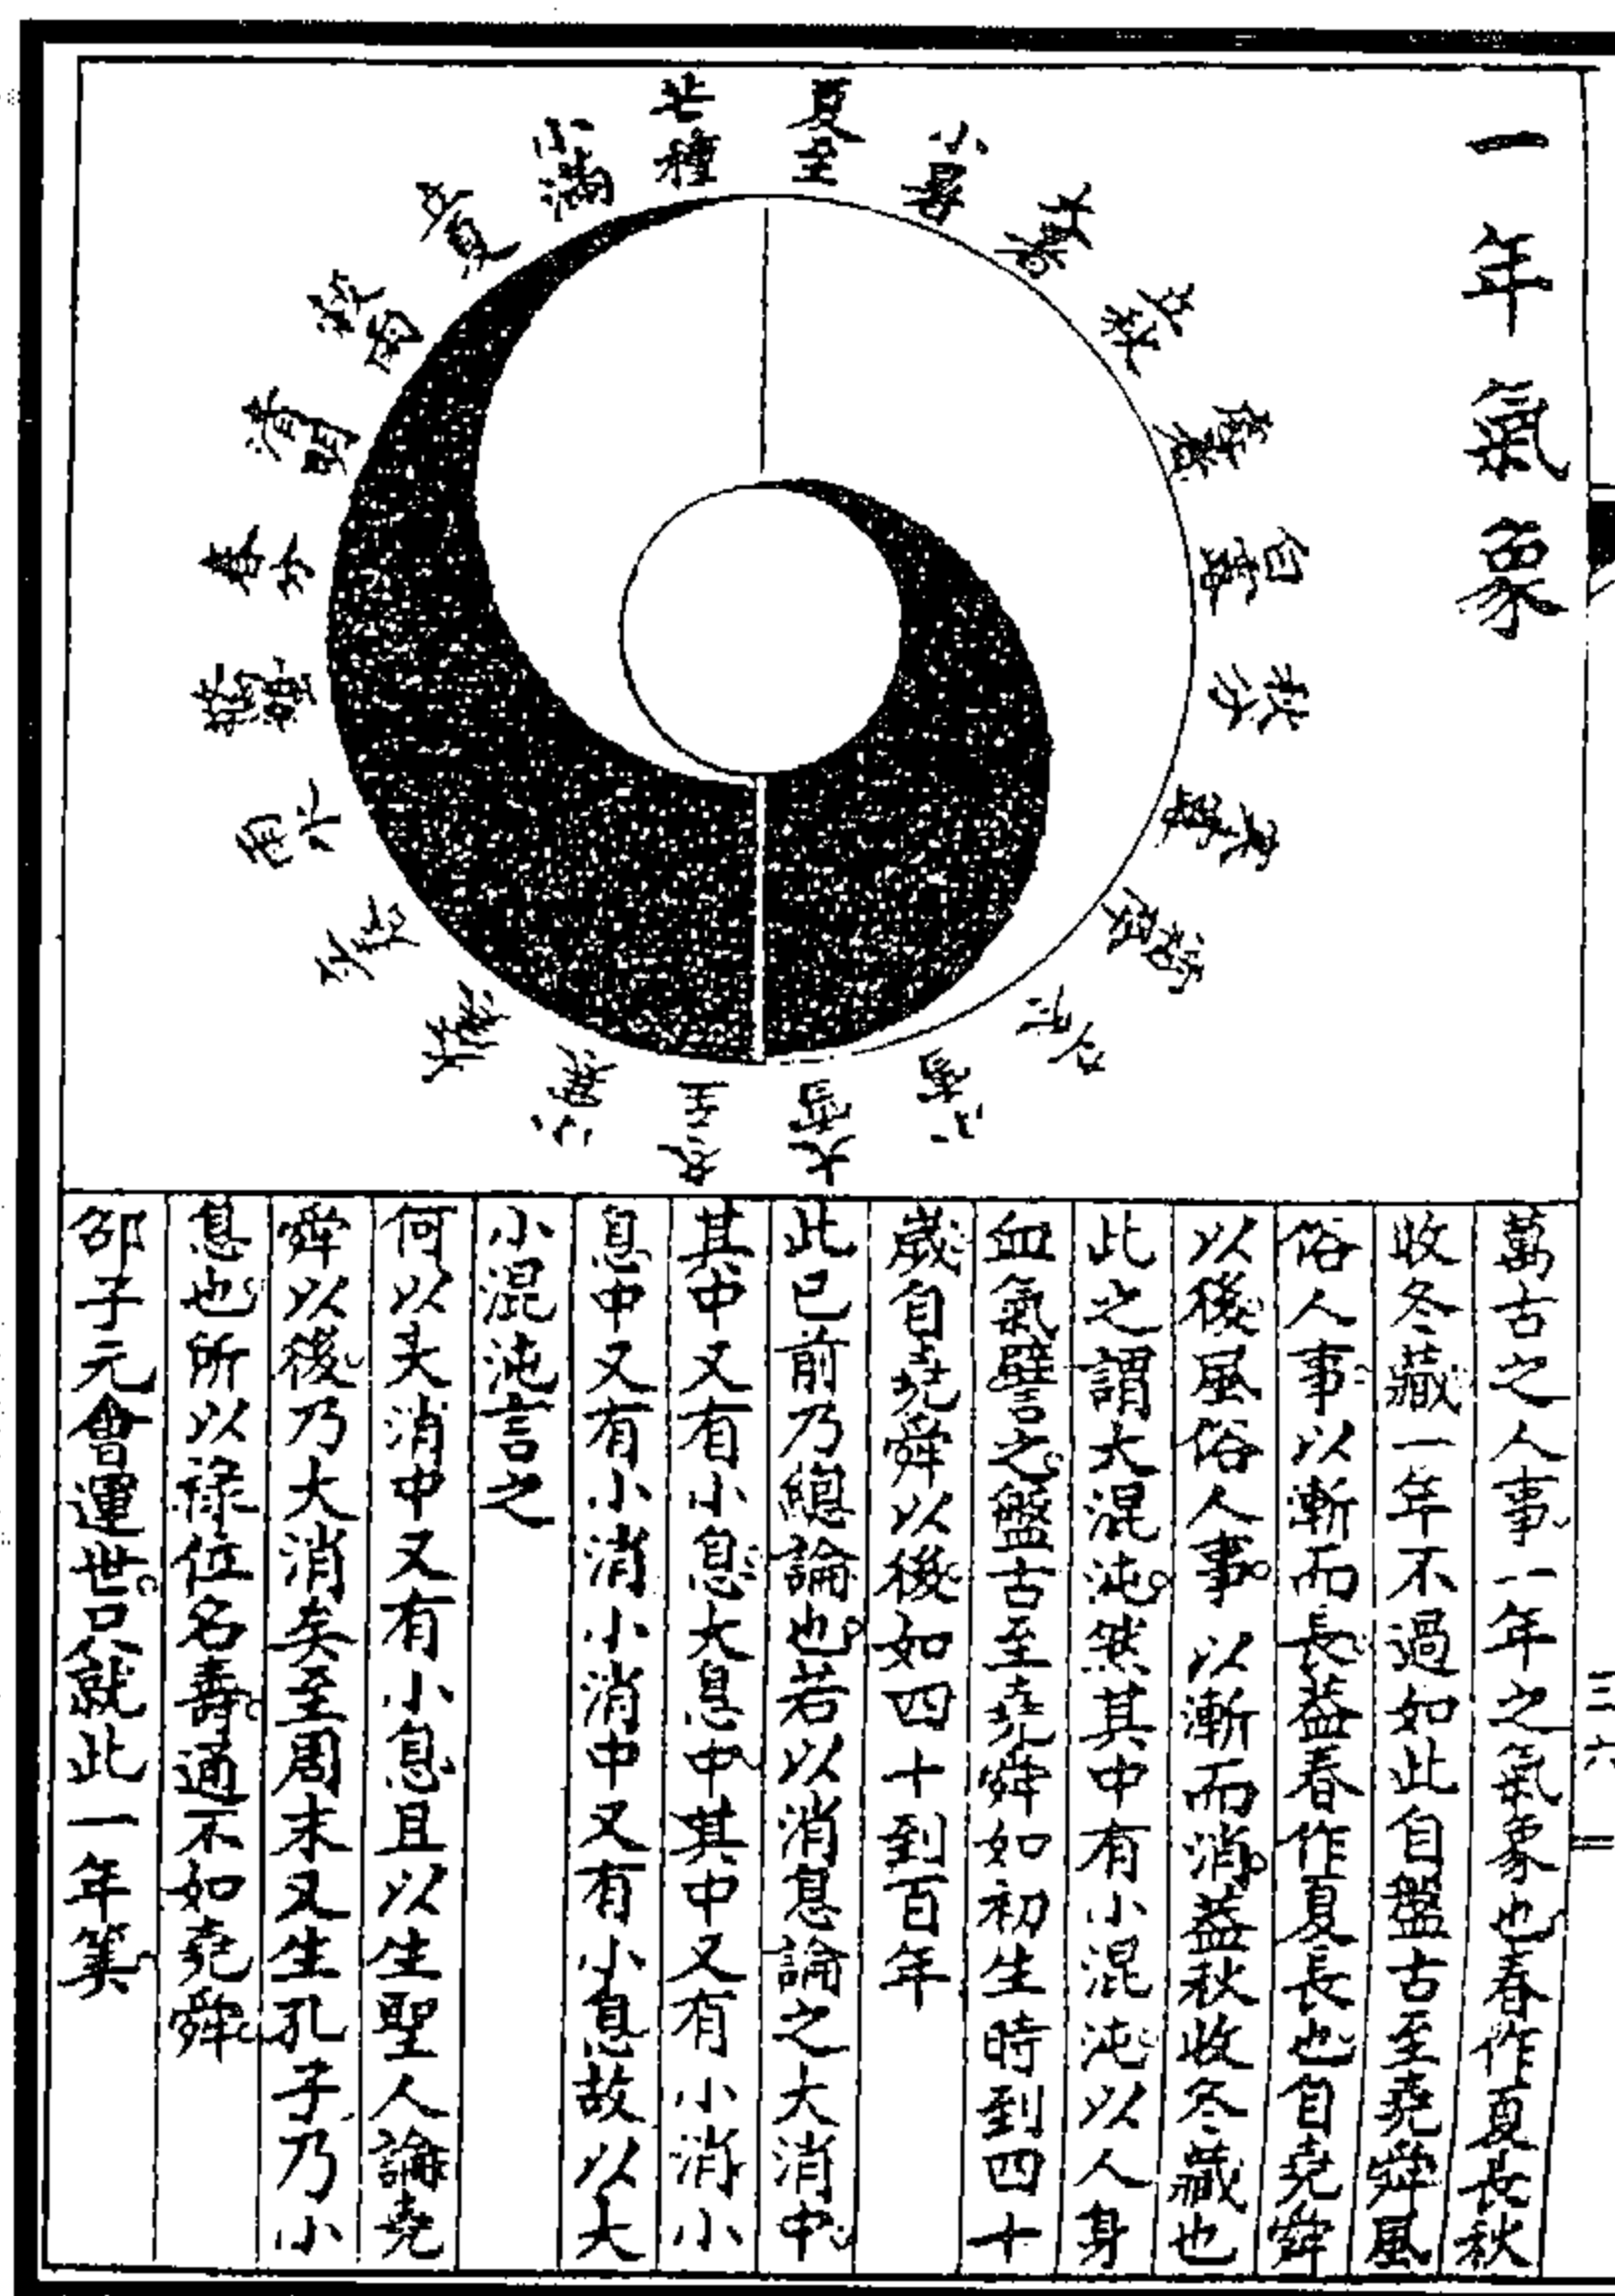 一年氣象
夏至
小暑
大暑
立秋
處暑
白露
秋分
寒露
霜降
立冬
小雪
大雪
冬至
小寒
大寒
立春
雨水
驚蟄
春分
清明
穀雨
立夏
小滿
芒種
萬古之人事一年之氣象也春作夏長秋
收冬藏一年不過如此自盤古至堯舜風
俗人事以漸而長蓋春作夏長也自堯舜
以後風俗人事以漸而消蓋秋收冬藏也
此之謂大混沌然其中有小混沌以人身
血氣譬之盤古至堯舜如初生時到四十
歲自堯舜以後如四十到百年
此已前乃總論也若以消息論之大消中
其中又有小息大息中其中又有小消小
息中又有小消小消中又有小息故以大
小混沌言之
何以大消中又有小息且以生聖人論堯
舜以後乃大消矣至周末又生孔子乃小
息也所以祿位名壽通不如堯舜
邵子元會運世只就此一年筭
三六